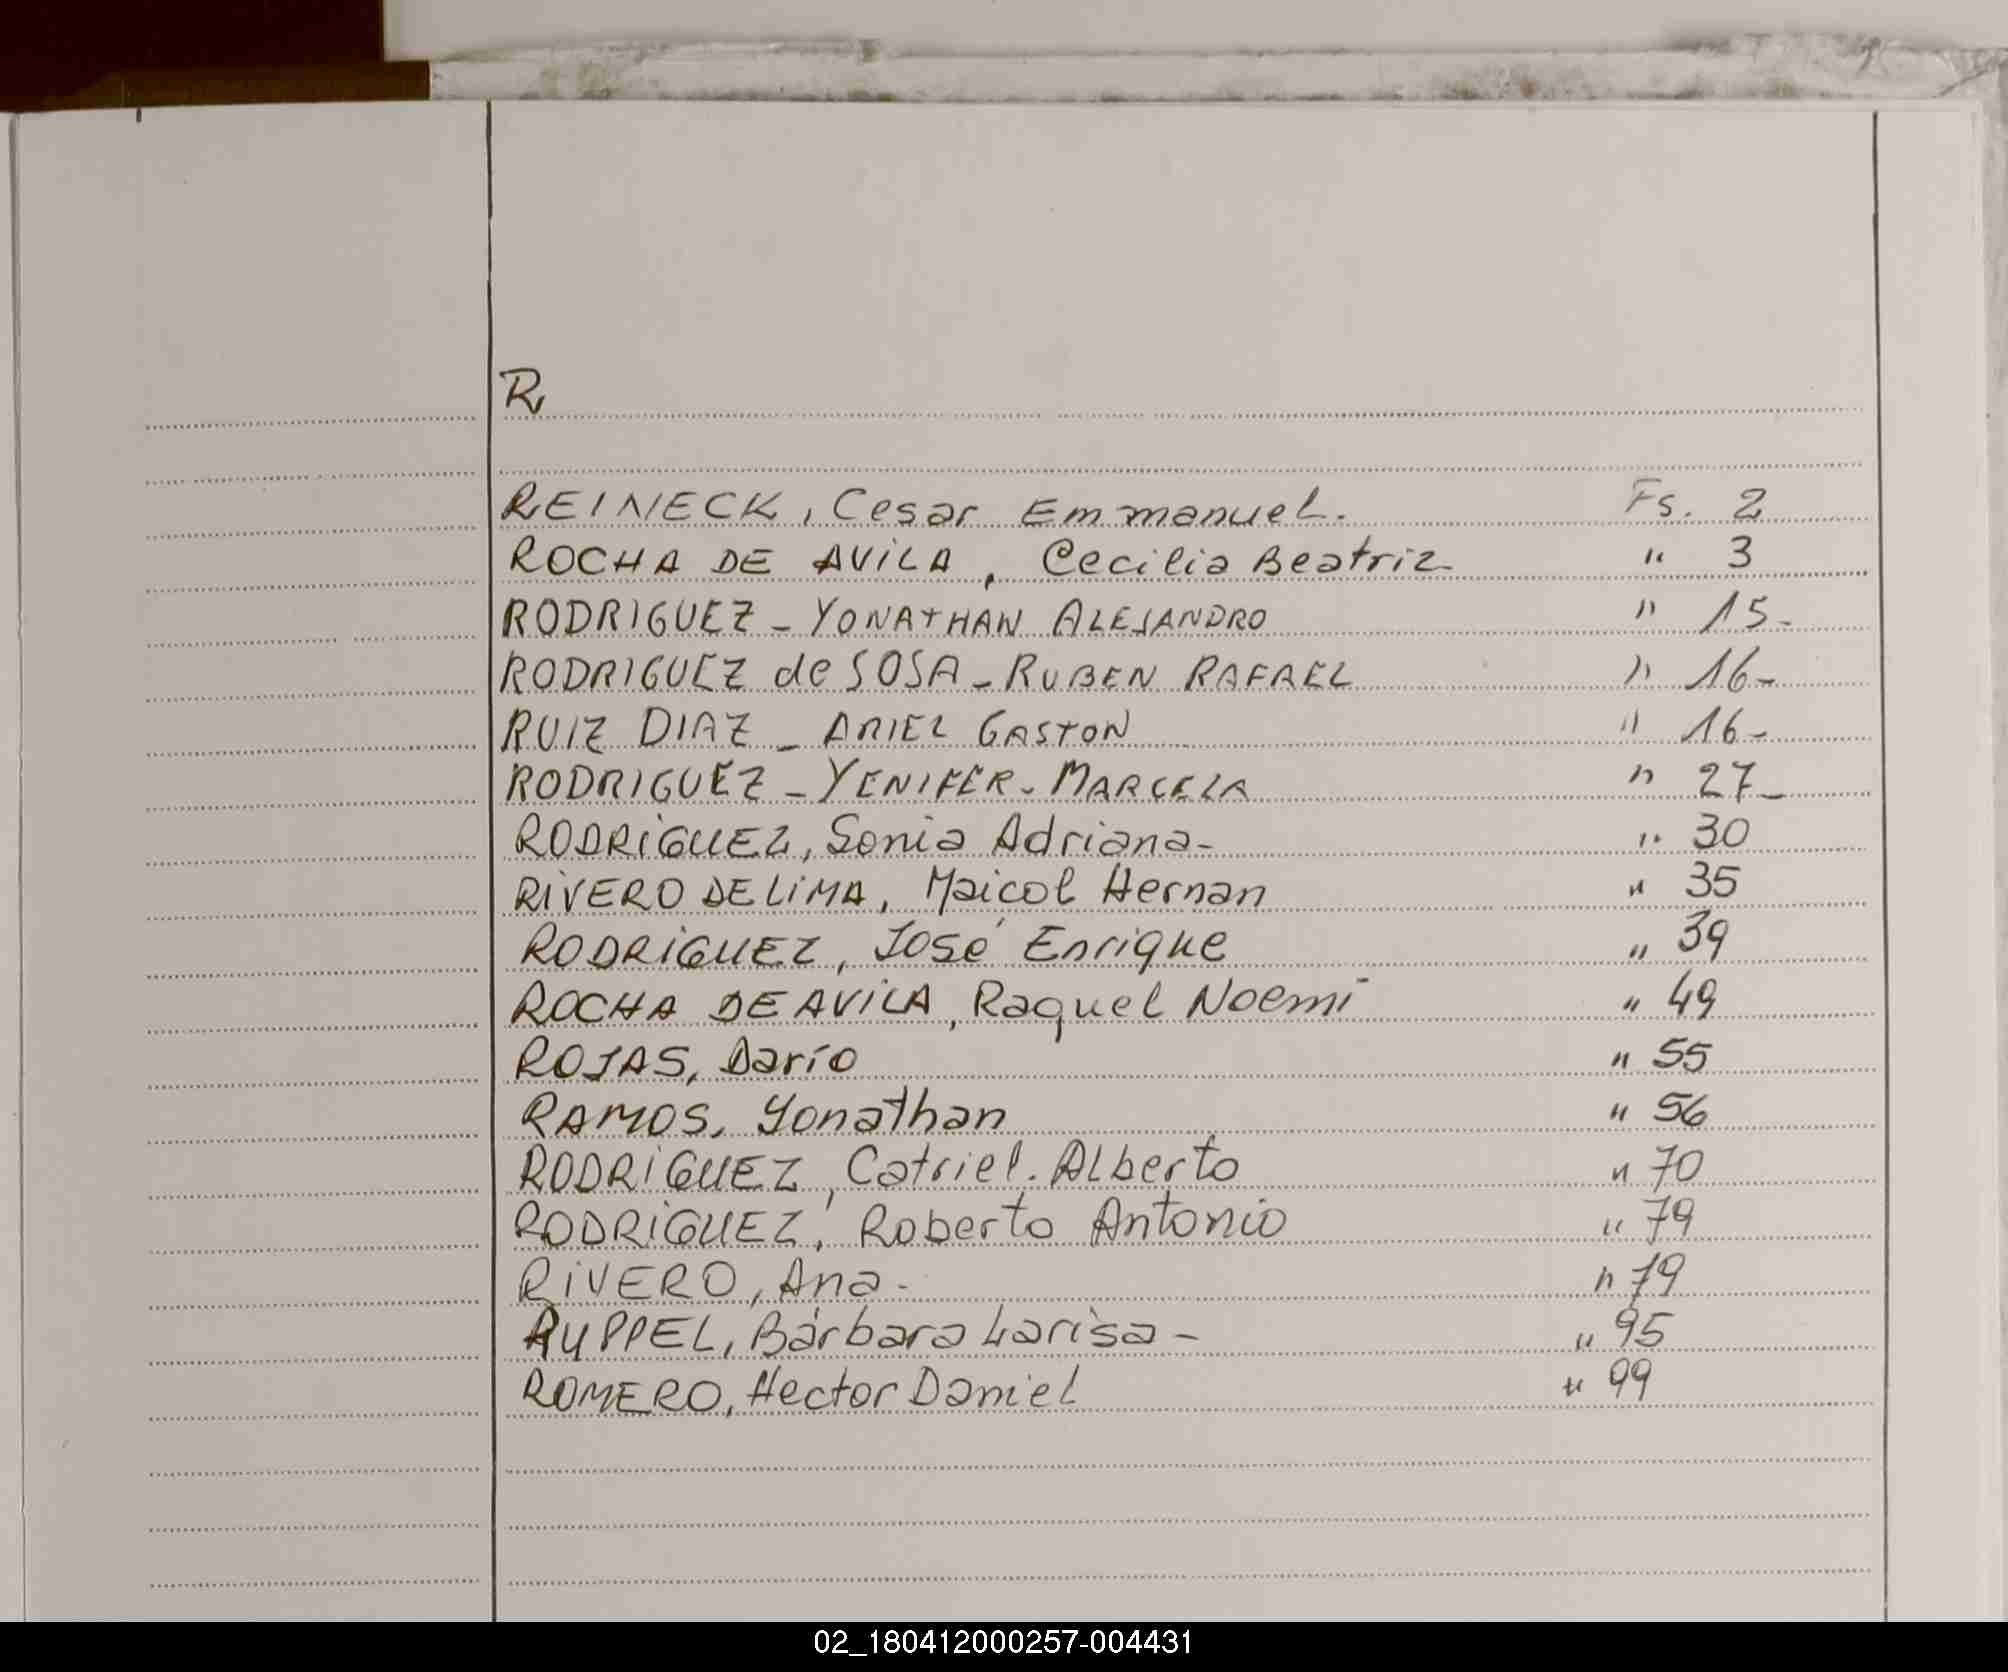 R
REINECK, Cesar Emmanuel. Fs. 2
ROCHA DE AVILA, Cecilia Beatriz " 3
RODRIGUEZ - YONATHAN ALEJANDRO " 15-
RODRIGUEZ de SOSA - RUBEN RAFAEL " 16-
RUIZ DIAZ - ARIEL GASTON " 16-
RODRIGUEZ - YENIFER - MARCELA " 27-
RODRIGUEZ, Sonia Adriana- " 30
RIVERO DE LIMA, Maicol Hernan " 35
RODRIGUEZ, José Enrique " 39
ROCHA DE AVILA, Raquel Noemi " 49
ROJAS, Darío " 55
RAMOS, Yonathan " 56
RODRIGUEZ, Catriel. Alberto " 70
RODRIGUEZ, Roberto Antonio " 79
RIVERO, Ana- " 79
RUPPEL, Bárbara Larisa- " 95
ROMERO, Hector Daniel " 99
02_180412000257-004431